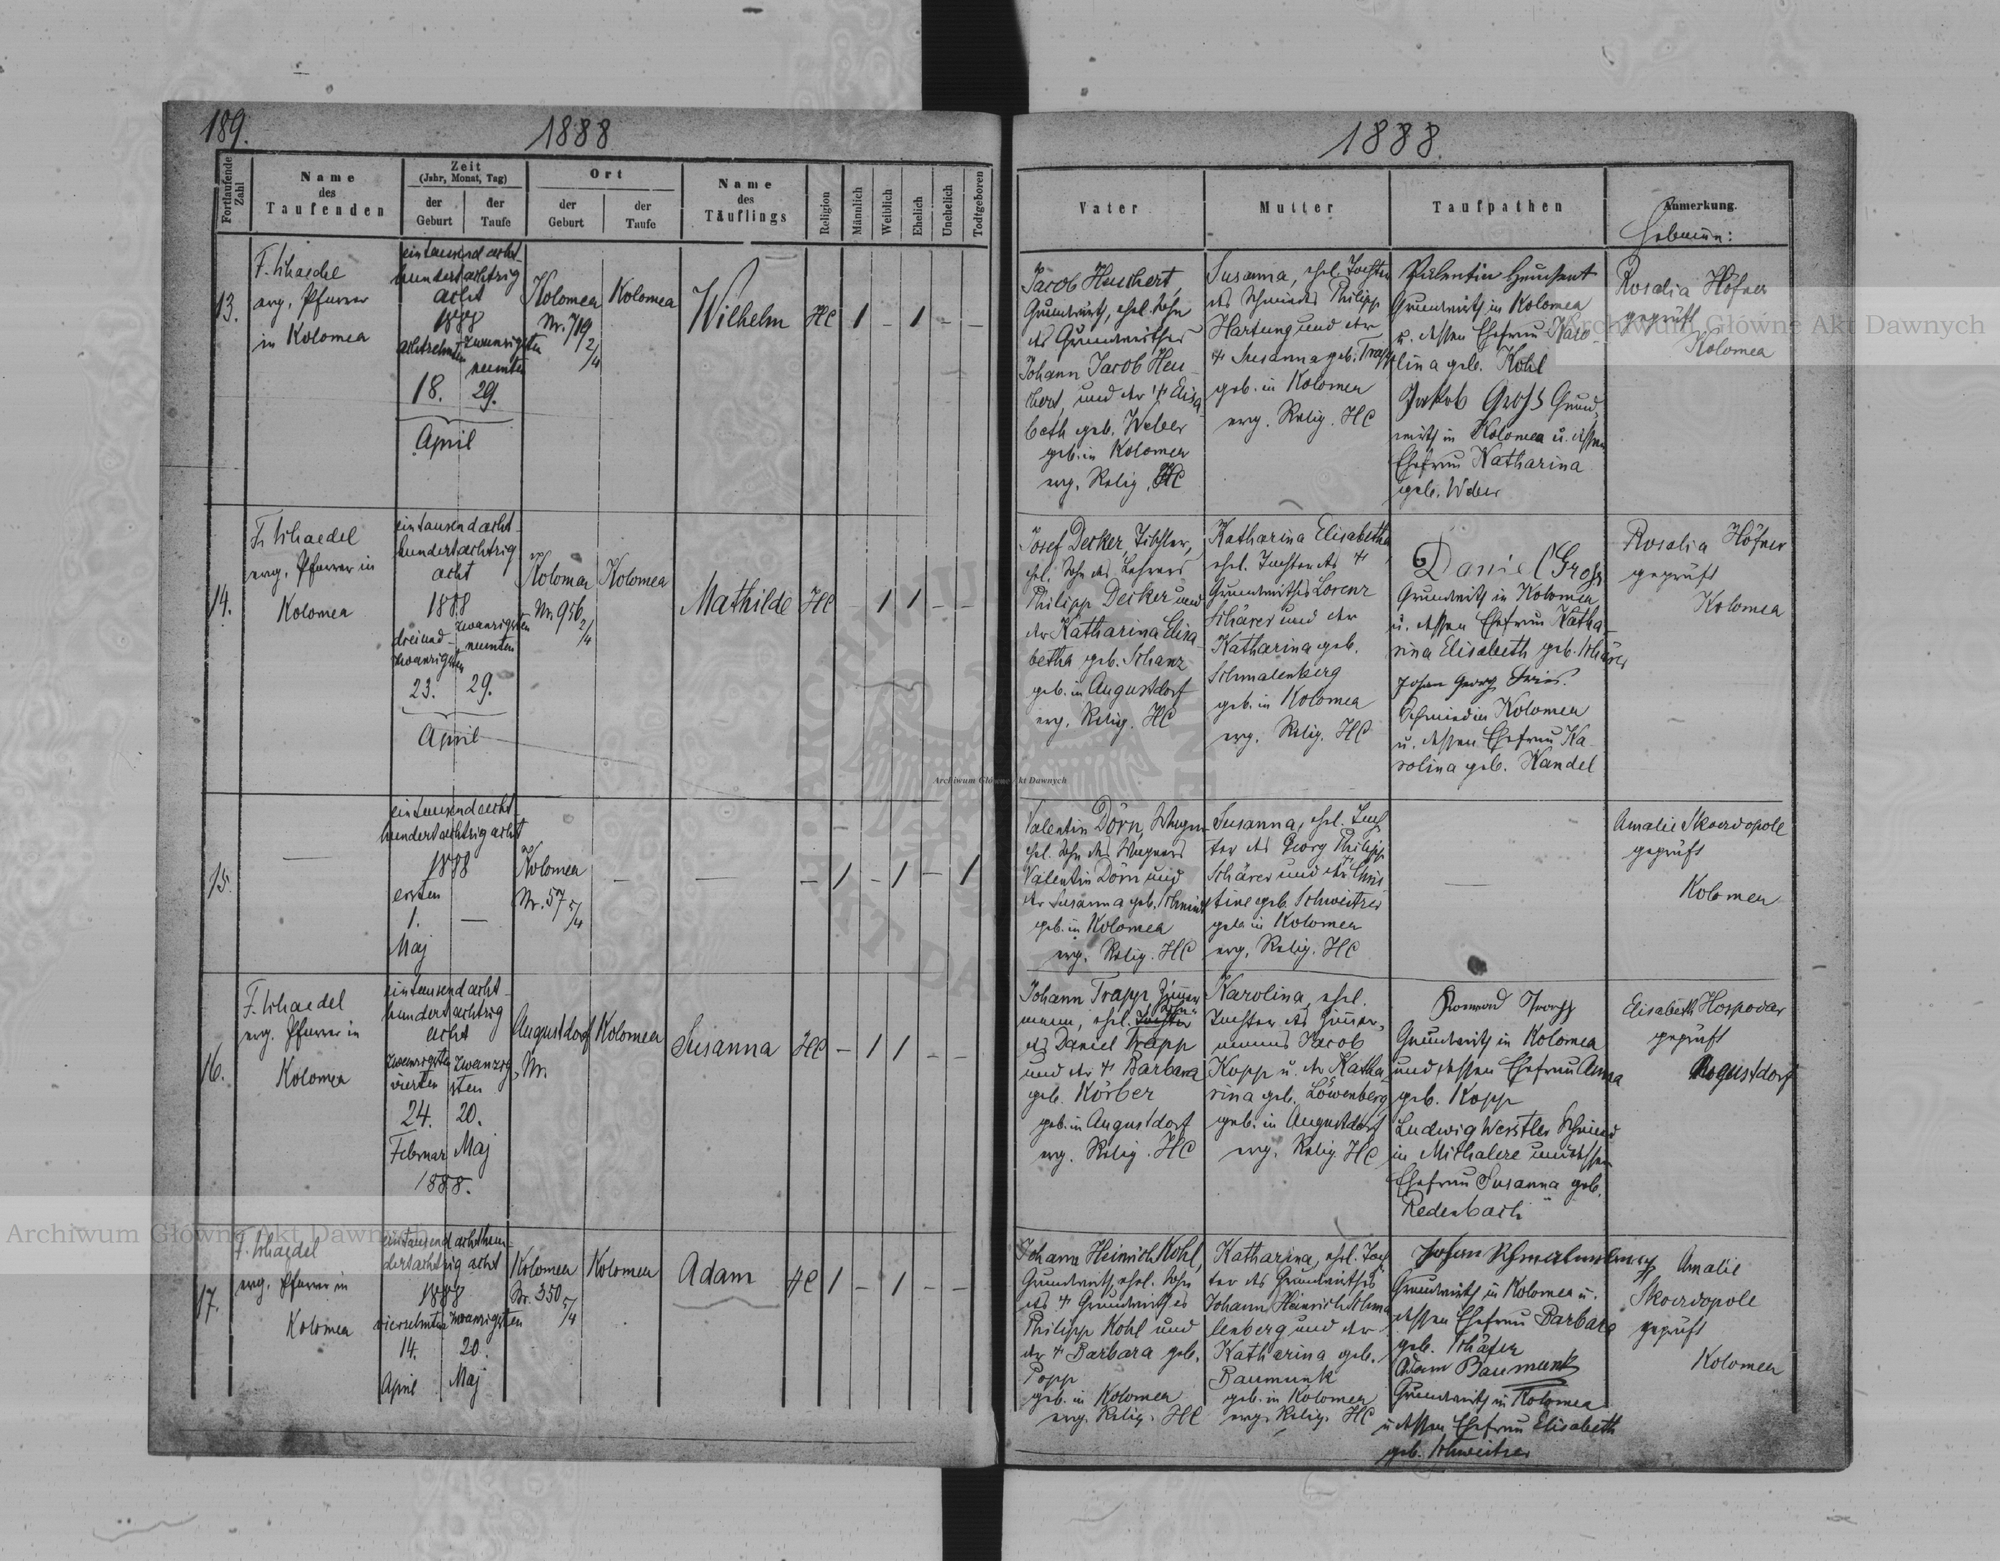 189.
1888
1888.
Fortlaufende Zahl
Name
des
Taufenden
Zeit
(Jahr, Monat, Tag)
der
Geburt
der
Taufe
Ort
der
Geburt
der
Taufe
Name
des
Täuflings
Religion
Männlich
Weiblich
Ehelich
Unehelich
Todtgeboren
Vater
Mutter
Taufpathen
Anmerkung.
13.
F. Schaedel
evg. Pfarrer
in Kolomea
eintausend acht-
hundert achtzig
acht
1888
achtzehnten
zwanzigsten
neunten
18.
29.
April
Kolomea
Nr. 719
2/4
Kolomea
Wilhelm
HC
1
-
1
-
-
Jacob Heuchert,
Grundwirth, ehel. Sohn
des Grundwirthes
Johann Jacob Heu-
chert, und der + Elisa-
beth geb. Weber
geb. in Kolomea
evg. Relig. HC
Susanna, ehel. Tochter
des Schmiedes Philipp
Hartung und der
+ Susanna geb. Trapp
geb. in Kolomea
evg. Relig. HC
Valentin Heuchert
Grundwirth in Kolomea
u. dessen Ehefrau Karo-
lina geb. Kohl
Jakob Gross Grund-
wirth in Kolomea u. dessen
Ehefrau Katharina
geb. Weber
Rosalia Höfner
geprüft
Kolomea
14.
F. Schaedel
evg. Pfarrer in
Kolomea
eintausend acht-
hundert achtzig
acht
1888
dreiund-
zwanzigsten
zwanzigsten
neunten
23.
29.
April
Kolomea
Nr. 956
2/4
Kolomea
Mathilde
HC
-
1
1
-
-
Josef Decker, Tischler,
ehel. Sohn des Lehrers
Philipp Decker und
der Katharina Elisa-
betha geb. Schanz
geb. in Augustdorf
evg. Relig. HC
Katharina Elisabetha,
ehel. Tochter des +
Grundwirthes Lorenz
Schärer und der
Katharina geb.
Schmalenberg
geb. in Kolomea
evg. Relig. HC
Daniel Gross
Grundwirth in Kolomea
u. dessen Ehefrau Katha-
rina Elisabeth geb. Schärer
Johan Georg Fries.
Schmied in Kolomea
u. dessen Ehefrau Ka-
rolina geb. Kandel
Rosalia Höfner
geprüft
Kolomea
15.
eintausend acht-
hundert achtzig acht
1888
ersten
1.
Maj
Kolomea
Nr. 57
5/4
-
1
-
1
-
1
Valentin Dörn, Wagner
ehel. Sohn des Wagners
Valentin Dörn und
der Susanna geb. Schmidt
geb. in Kolomea
evg. Relig. HC
Susanna, ehel. Toch-
ter des Georg Philipp
Schärer und der Chris-
tine geb. Schweitzer
geb. in Kolomea
evg. Relig. HC
Amalie Skoerdopole
geprüft
Kolomea
16.
F. Schaedel
evg. Pfarrer in
Kolomea
eintausend acht-
hundert achtzig
acht
zwanzigsten
vierten
zwanzig-
sten
24.
20.
Februar
Maj
1888.
Augustdorf
Nr.
Kolomea
Susanna
HC
-
1
1
-
-
Johann Trapp, Zimmer-
mann, ehel. Sohn
des Daniel Trapp
und der + Barbara
geb. Körber
geb. in Augustdorf
evg. Relig. HC
Karolina, ehel.
Tochter des Zimmer-
manns Jacob
Kopp u. der Katha-
rina geb. Löwenberg
geb. in Augustdorf
evg. Relig. HC
Konrad Trapp
Grundwirth in Kolomea
und dessen Ehefrau Anna
geb. Kopp
Ludwig Werstler Schmied
in Mithalere und dessen
Ehefrau Susanna geb.
Redenbach
Elisabeth Hospodar
geprüft
Augustdorf
17.
F. Schaedel
evg. Pfarrer in
Kolomea
eintausend achthun-
dertachtzig acht
1888
vierzehnten
zwanzigsten
14.
20.
April
Maj
Kolomea
Nr. 350
5/4
Kolomea
Adam
HC
1
-
1
-
-
Johann Heinrich Kohl,
Grundwirth, ehel. Sohn
des + Grundwirthes
Philipp Kohl und
der + Barbara geb.
Popp
geb. in Kolomea
evg. Relig. HC
Katharina, ehel. Toch-
ter des Grundwirthes
Johann Heinrich Schma-
lenberg und der
Katharina geb.
Baumunk
geb. in Kolomea
evg. Relig. HC
Johan Schmalenberg
Grundwirth in Kolomea u.
dessen Ehefrau Barbara
geb. Schäfer
Adam Baumunk
Grundwirth in Kolomea
u. dessen Ehefrau Elisabeth
geb. Schweitzer
Amalie
Skoerdopole
geprüft
Kolomea
Archiwum Główne Akt Dawnych
Archiwum Główne Akt Dawnych
Archiwum Główne Akt Dawnych